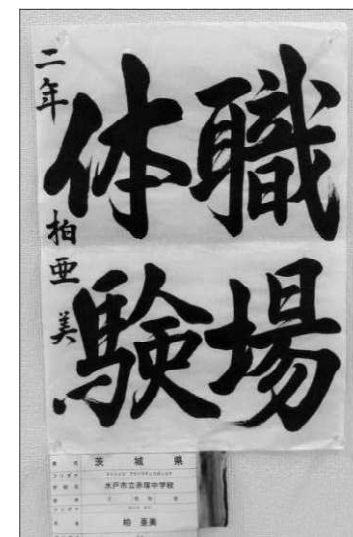 職場
体験
二年 柏亜美
茨城県
水戸市立赤塚中学校
柏 亜美